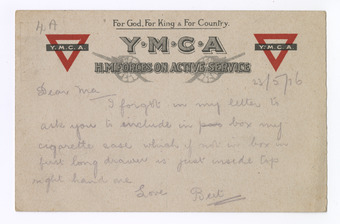 4.A
For God, For King & For Country.
Y.M.C.A
Y·M·C·A
Y.M.C.A
H.M. FORCES ON ACTIVE SERVICE
23/5/16
Dear Ma
I forgot in my letter to
ask you to include in box my
cigarette case which if not in box in
first long drawer is just inside top
right hand one
Love Bert